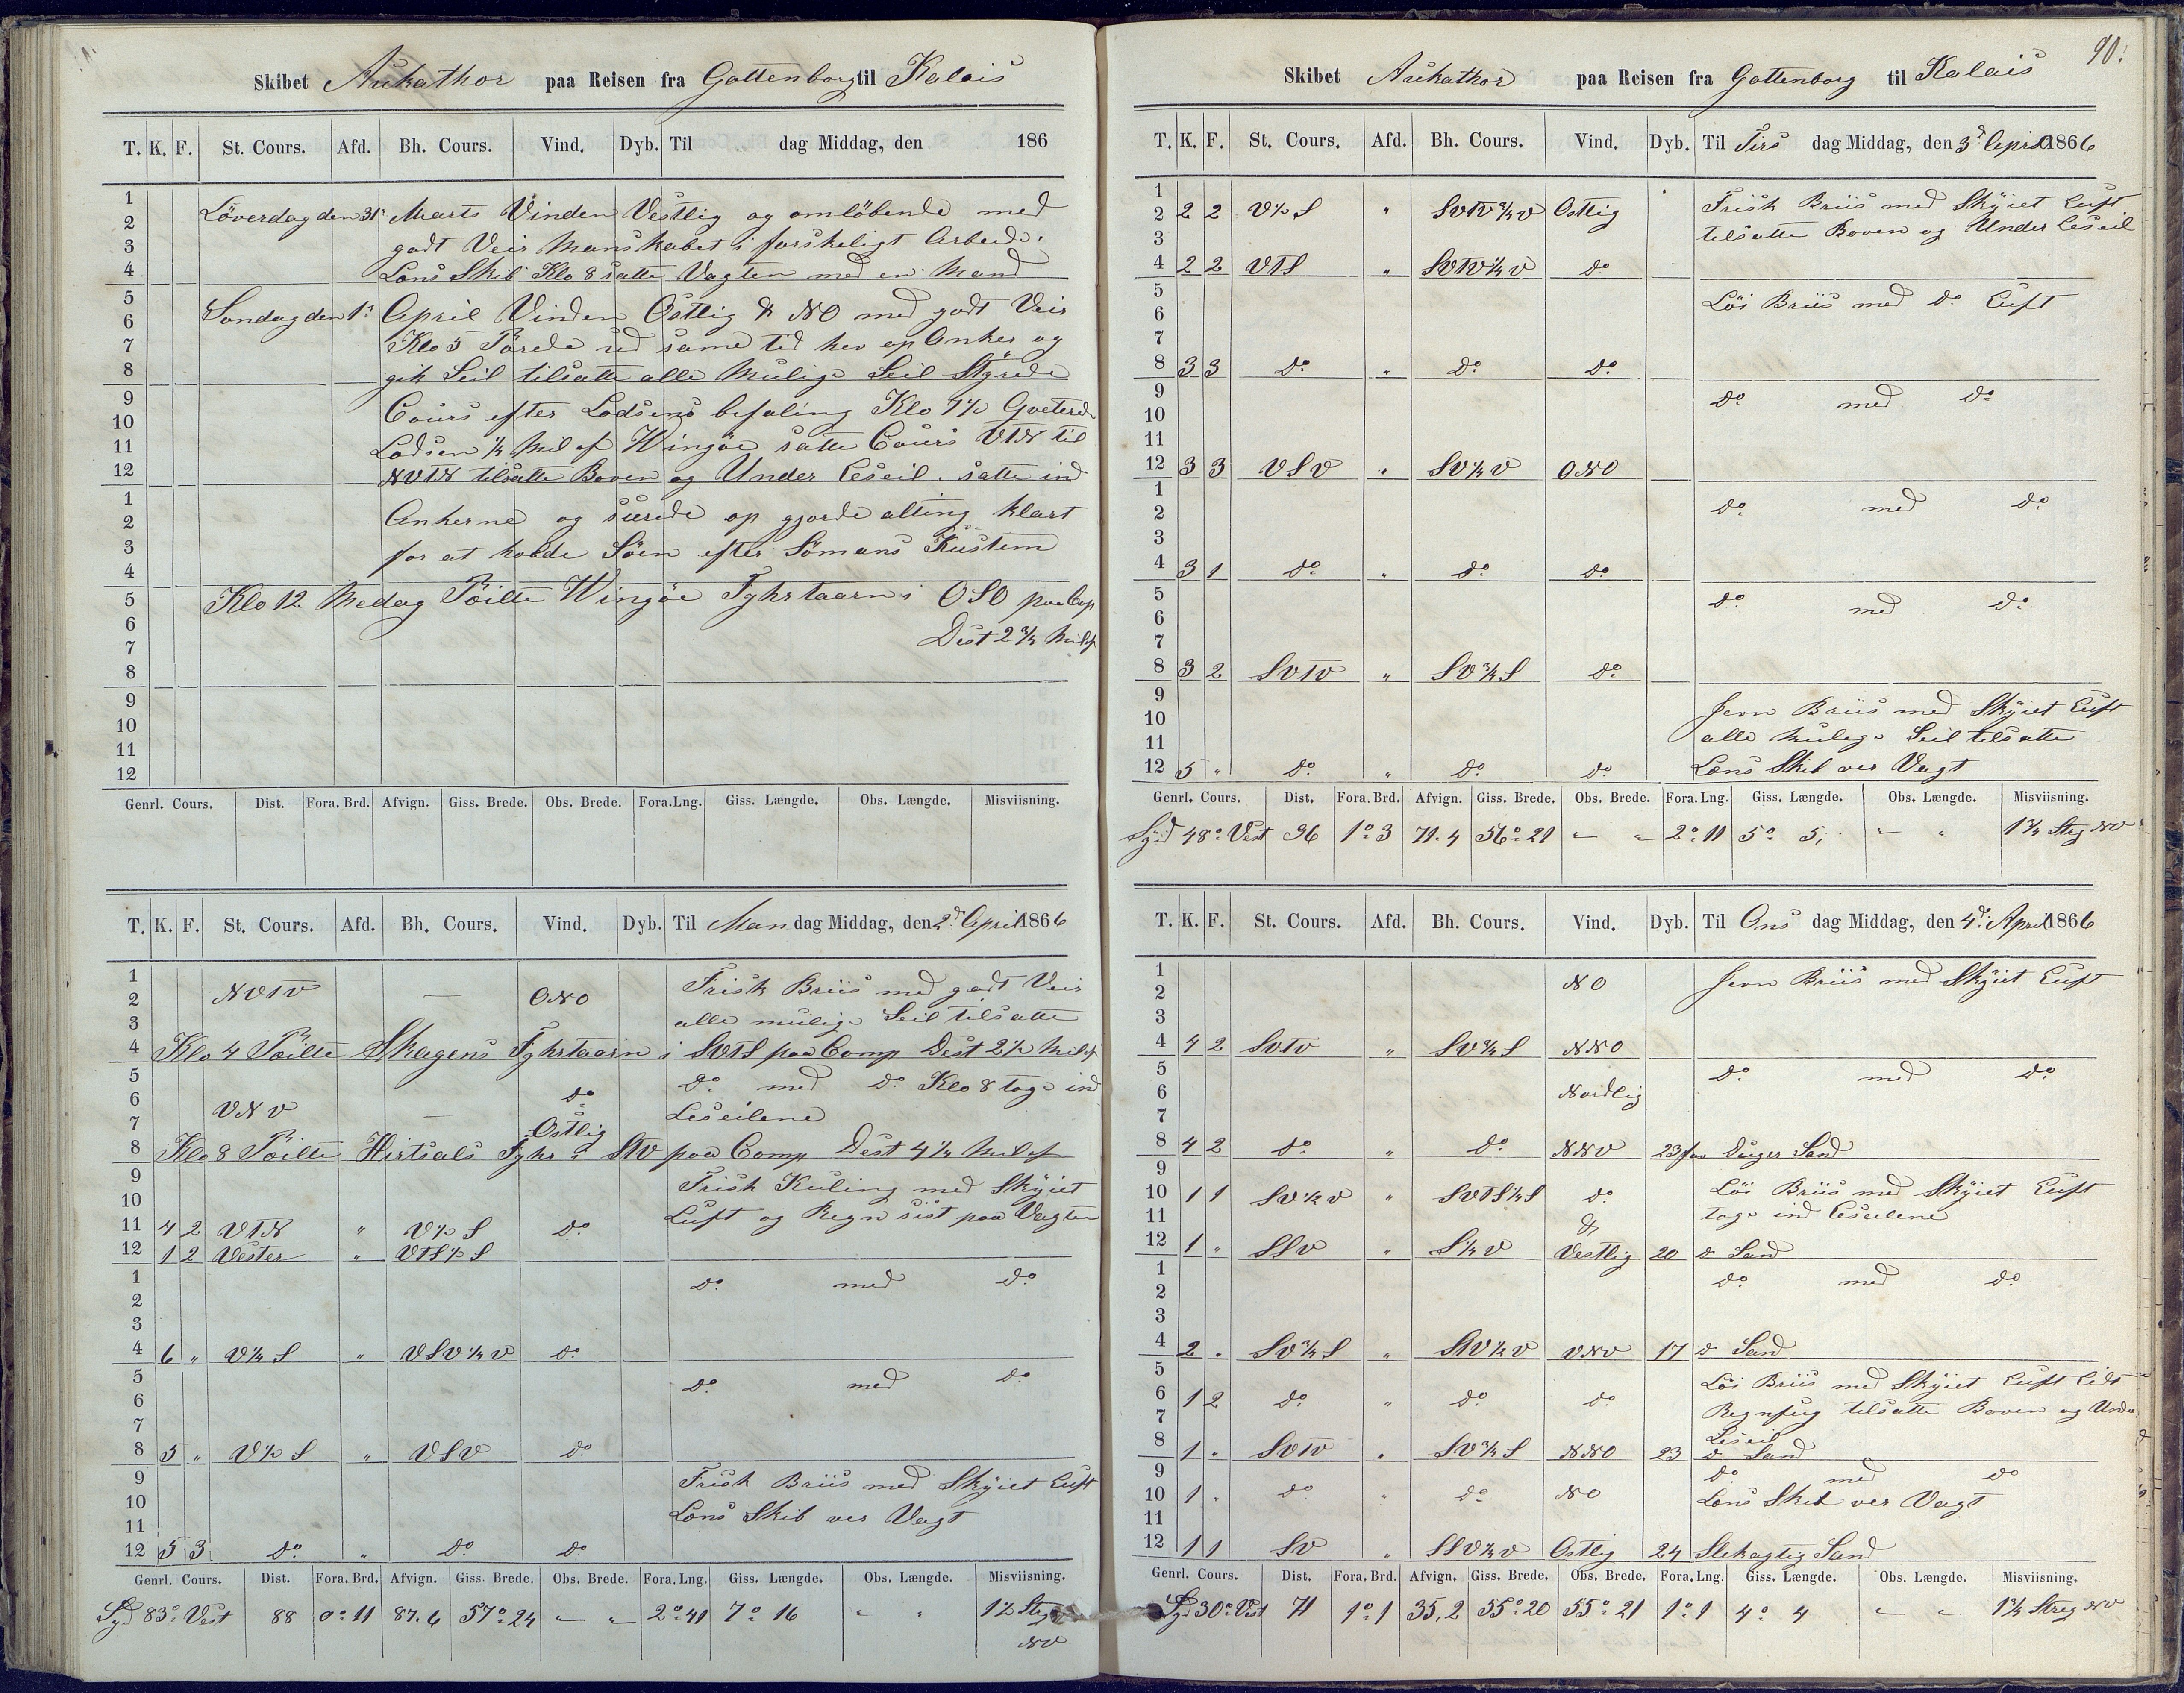 Skibet Aukathor paa Reisen fra Gottenborg til Kalais
T. K. F. St. Cours. Afd. Bh. Cours. Vind. Dyb. Til „ dag Middag, den 186
1
2 Löverdag den 31 Marts Vinden Vestlig og omlöbende med
3 godt Veir Manskabet i forskeligt Arbeide.
4 Lens Skib Klo 8 satte Vagten med en Mand
5 Söndag den 1 April Vinden Ostlig & NO med godt Veir
6
7 Klo 5 Törede ud same tid hev op Anker og
8 gik Seil tilsatte alle Mulige Seil Styrede
9 Cours efter Lodsens befaling Klo 7½ Qveterede
10
11 Lodsen ¼ Mil af Wingöe satte Cours VTN til
12 NVTN tilsatte Boven og Under Leseil. satte ind
1 Ankerne og surede op gjorde alting klart
2
3 for at holde Söen efter Sömans Kustem
4
5 Klo 12 Medag Pöilte Wingöe Fyhrtaarn i OSO paa Cop
6 Dist 2¾ Mil af
7
8
9
10
11
12
Genrl. Cours. Dist. Fora. Brd. Afvign. Giss. Brede. Obs. Brede. Fora. Lng. Giss. Længde. Obs. Længde. Misviisning.
T. K. F. St. Cours. Afd. Bh. Cours. Vind. Dyb. Til Man dag Middag, den 2d April 1866
1 Frisk Briis med godt Veir
2 NVTV — ONO
3 alle mulige Seil tilsatte
4 Klo 4 Pöilte Skagens Fyhrtaarn i SVTS paa Comp Dest 2½ Mil af
5 do med do Klo 8 toge ind
6 VNV — do
7 Ostlig Leseilene
8 Klo 8 Pöilte Hirtsals Fyhr i STV paa Comp Dest 4¼ Mil af
9 Frisk Kuling med Skyiet
10 Luft og Regn sist paa Vagten
11 4 2 VTN „ V½S do
12 1 2 Vester „ VTS½S
1 do med do
2
3
4 6 „ V¼S „ VSV¼V do
5 do med do
6
7
8 5 „ V½S „ VSV do
9 Frisk Briis med Skyiet Luft
10 Lens Skib ver Vagt
11
12 5 3 do „ do do
Genrl. Cours. Dist. Fora. Brd. Afvign. Giss. Brede. Obs. Brede. Fora. Lng. Giss. Længde. Obs. Længde. Misviisning.
Syd 83° Vest 88 0°11 87.6 57°24 „ „ 2°41 7°16 „ „ 1½ Streg
NV
90.
Skibet Aukathor paa Reisen fra Gottenborg til Kalais
T. K. F. St. Cours. Afd. Bh. Cours. Vind. Dyb. Til Tirs dag Middag, den 3d April 1866
1 Frisk Briis med Skyiet Luft
2 2 2 V½S „ SVTV¾V Ostlig
3 tilsatte Boven og Under Leseil
4 2 2 VTS „ SVTV¼V do
5 Löi Briis med do Luft
6
7
8 3 3 do „ do do
9 do med do
10
11
12 3 3 VSV „ SV¼V ONO
1 do med do
2
3
4 3 1 do „ do do
5 do med do
6
7
8 3 2 SVTV „ SV¾S do
9
10 Jevn Briis med Skyiet Luft
11 alle Mulige Seil tilsatte
12 5 „ do „ do do Lens Skib ver Vagt
Genrl. Cours. Dist. Fora. Brd. Afvign. Giss. Brede. Obs. Brede. Fora. Lng. Giss. Længde. Obs. Længde. Misviisning.
Syd 48° Vest 96 1°3 71.4 56°21 „ „ 2°11 5°5, „ „ 1¾ Streg NV
T. K. F. St. Cours. Afd. Bh. Cours. Vind. Dyb. Til Ons dag Middag, den 4de April 1866
1 NO Jevn Briis med Skyiet Luft
2
3
4 4 2 SVTV „ SV¾S NNO
5 do med do
6 Nordlig
7
8 4 2 do „ do NNV 23 Sand
9
10 1 1 SV½V „ SVTS¼S do Löi Briis med Skyiet Luft
11 & toge ind Leseilene
12 1 „ SSV „ S¼V Vestlig 20 do Sand
1 do med do
2
3
4 2 „ SV¾S „ STV¼V VNV 17 do Sand
5 Löi Briis med Skyiet Luft Lidt
6 1 2 do „ do do
7 Regnfug tilsatte Boven og Under
8 1 „ SVTV „ SV¾S NNO 23 Leseil
do Sand
9 do med do
10 1 „ do „ do NO Lens Skib ver Vagt
11
12 1 1 SV „ SSV¼V Ostlig 24 Sand
Genrl. Cours. Dist. Fora. Brd. Afvign. Giss. Brede. Obs. Brede. Fora. Lng. Giss. Længde. Obs. Længde. Misviisning.
Syd 30° Vest 71 1°1 35,2 55°20 55°21 1°1 4°4 „ „ 1¾ Streg NV